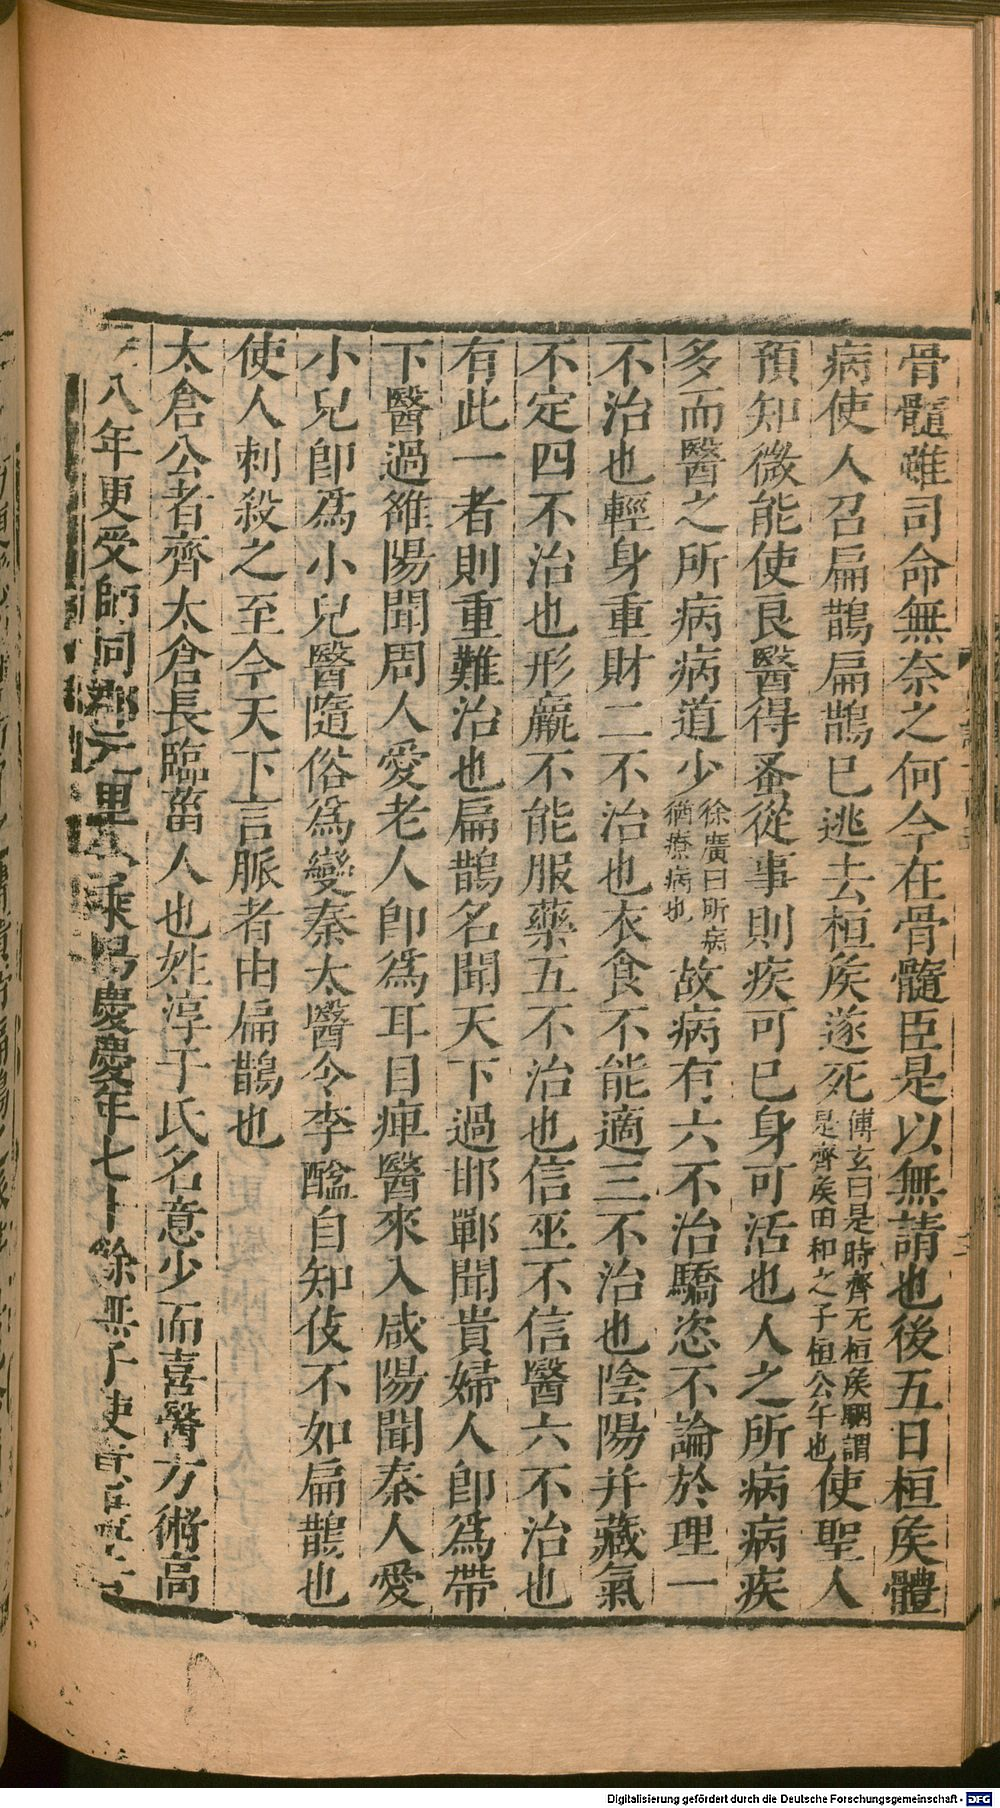 骨髓雖司命無奈之何今在骨髓臣是以無請也後五日桓矦體
病使人召扁鵲扁鵲已逃去桓矦遂死傅玄曰是時齊无桓矦駰謂是齊矦田和之子桓公午也使聖人
預知微能使良醫得蚤從事則疾可已身可活也人之所病病疾
多而醫之所病病道少徐廣曰所病猶療病也故病有六不治驕恣不論於理一
不治也輕身重財二不治也衣食不能適三不治也陰陽并藏氣
不定四不治也形羸不能服藥五不治也信巫不信醫六不治也
有此一者則重難治也扁鵲名聞天下過邯鄲聞貴婦人卽爲帶
下醫過雒陽聞周人愛老人卽爲耳目痺醫來入咸陽聞秦人愛
小兒卽爲小兒醫隨俗爲變秦太醫令李醯自知伎不如扁鵲也
使人刺殺之至今天下言脈者由扁鵲也
太倉公者齊太倉長臨菑人也姓淳于氏名意少而喜醫方術高
八年更受師同郡元里公乘陽慶慶年七十餘無子使意
Digitalisierung gefördert durch die Deutsche Forschungsgemeinschaft - DFG